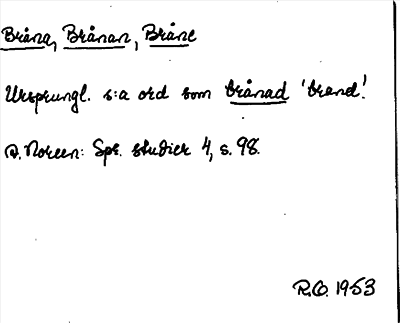 Bråna, Brånan, Bråne
Ursprungl. s:a ord som brånad 'brand'.
A. Noreen: Spr. studier 4, s. 98.
R.O. 1953